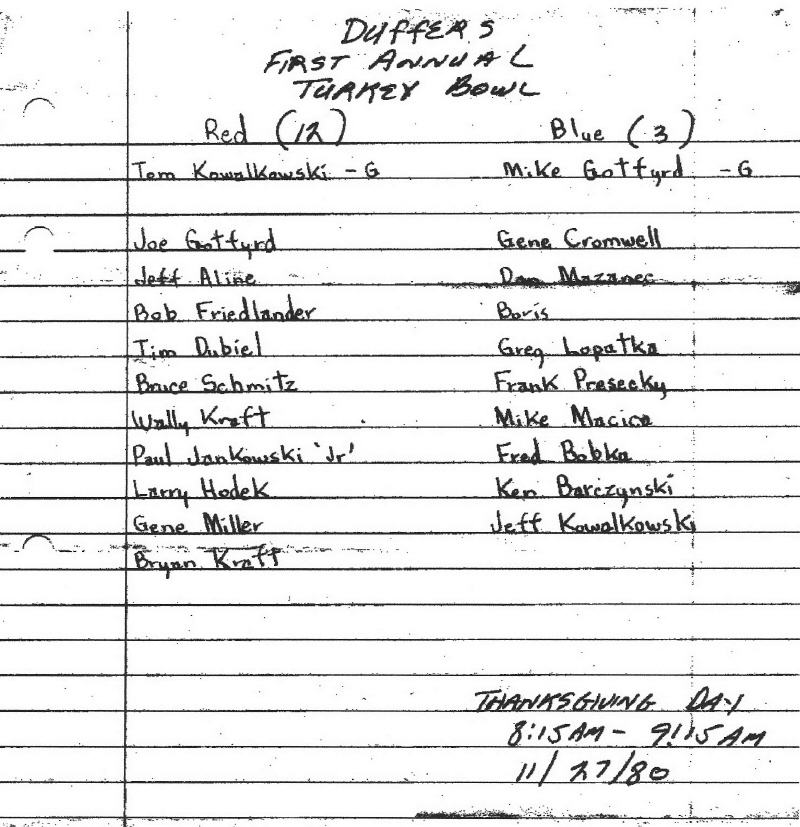 DUFFERS
FIRST ANNUAL
TURKEY BOWL
Red (12) Blue (3)
Tom Kowalkowski - G Mike Gottfyrd - G
Joe Gottfyrd Gene Cromwell
Jeff Aline Dan Mazanec
Bob Friedlander Boris
Tim Dubiel Greg Lopatka
Bruce Schmitz Frank Presecky
Wally Kraft Mike Macica
Paul Jankowski 'Jr' Fred Bobka
Larry Hodek Ken Barczynski
Gene Miller Jeff Kowalkowski
Bryan Kraft
THANKSGIVING DAY
8:15 AM - 9:15 AM
11/27/80